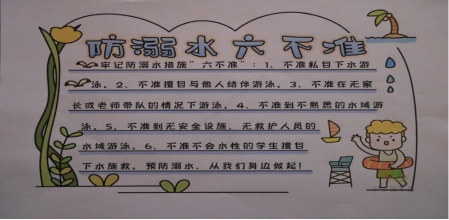 防溺水六不准
牢记防溺水措施"六不准"：1、不准私自下水游
泳。2、不准擅自与他人结伴游泳。3、不准在无家
长或老师带队的情况下游泳。4、不准到不熟悉的水域游
泳。5、不准到无安全设施、无救护人员的
水域游泳。6、不准不会水性的学生擅自
下水施救。预防溺水，从我们身边做起！